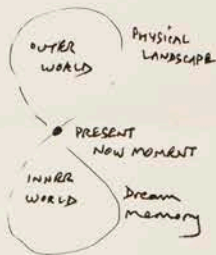 OUTER
WORLD
PHYSICAL
LANDSCAPE
PRESENT
NOW MOMENT
INNER
WORLD
Dream
memory